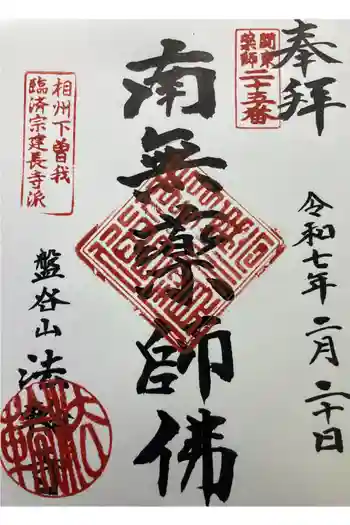 奉拝
関東
薬師
二十五番
令和七年二月二十日
南無薬師佛
相州下曽我
臨済宗建長寺派
盤谷山
法輪寺